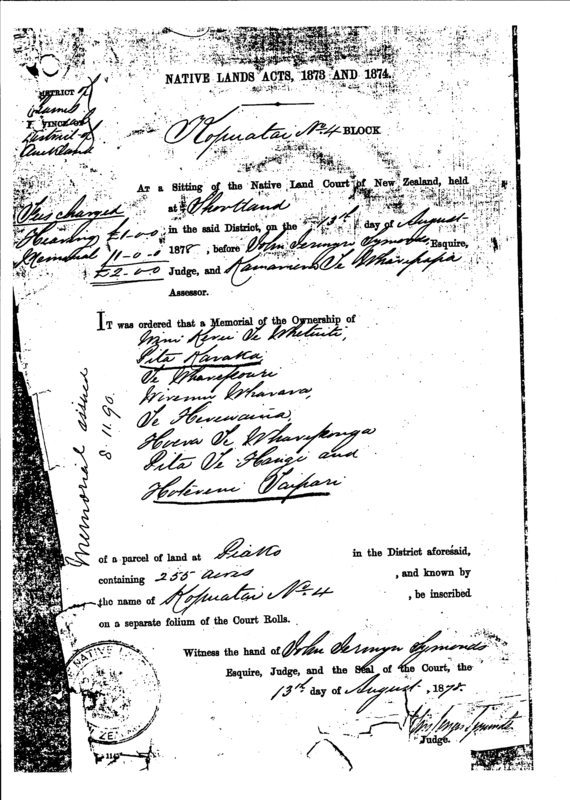 NATIVE LANDS ACTS, 1873 AND 1874.
DISTRICT of
Thames
PROVINCIAL
District of
Auckland
Kopuatai No. 4 BLOCK
At a Sitting of the Native Land Court of New Zealand, held
at Shortland
in the said District, on the 13th day of August
1878, before John Jermyn Symonds, Esquire,
Judge, and Te Wharepapa
Assessor.
Fees charged
Hearing £1-0-0
Memorial 1-0-0
£2-0-0
It was ordered that a Memorial of the Ownership of
Te Whetuiti,
Pita Karaka
Te Wharekouri
Wiremu Wharara,
Te Herewaina,
Hoera Te Whareponga
Pita Te Haugi and
Hotereni Taipari
Memorial issued
8.11.90.
of a parcel of land at Piako in the District aforesaid,
containing 255 acres, and known by
the name of Kopuatai No. 4, be inscribed
on a separate folium of the Court Rolls.
Witness the hand of John Jermyn Symonds
Esquire, Judge, and the Seal of the Court, the
13th day of August, 1878.
Judge.
NATIVE